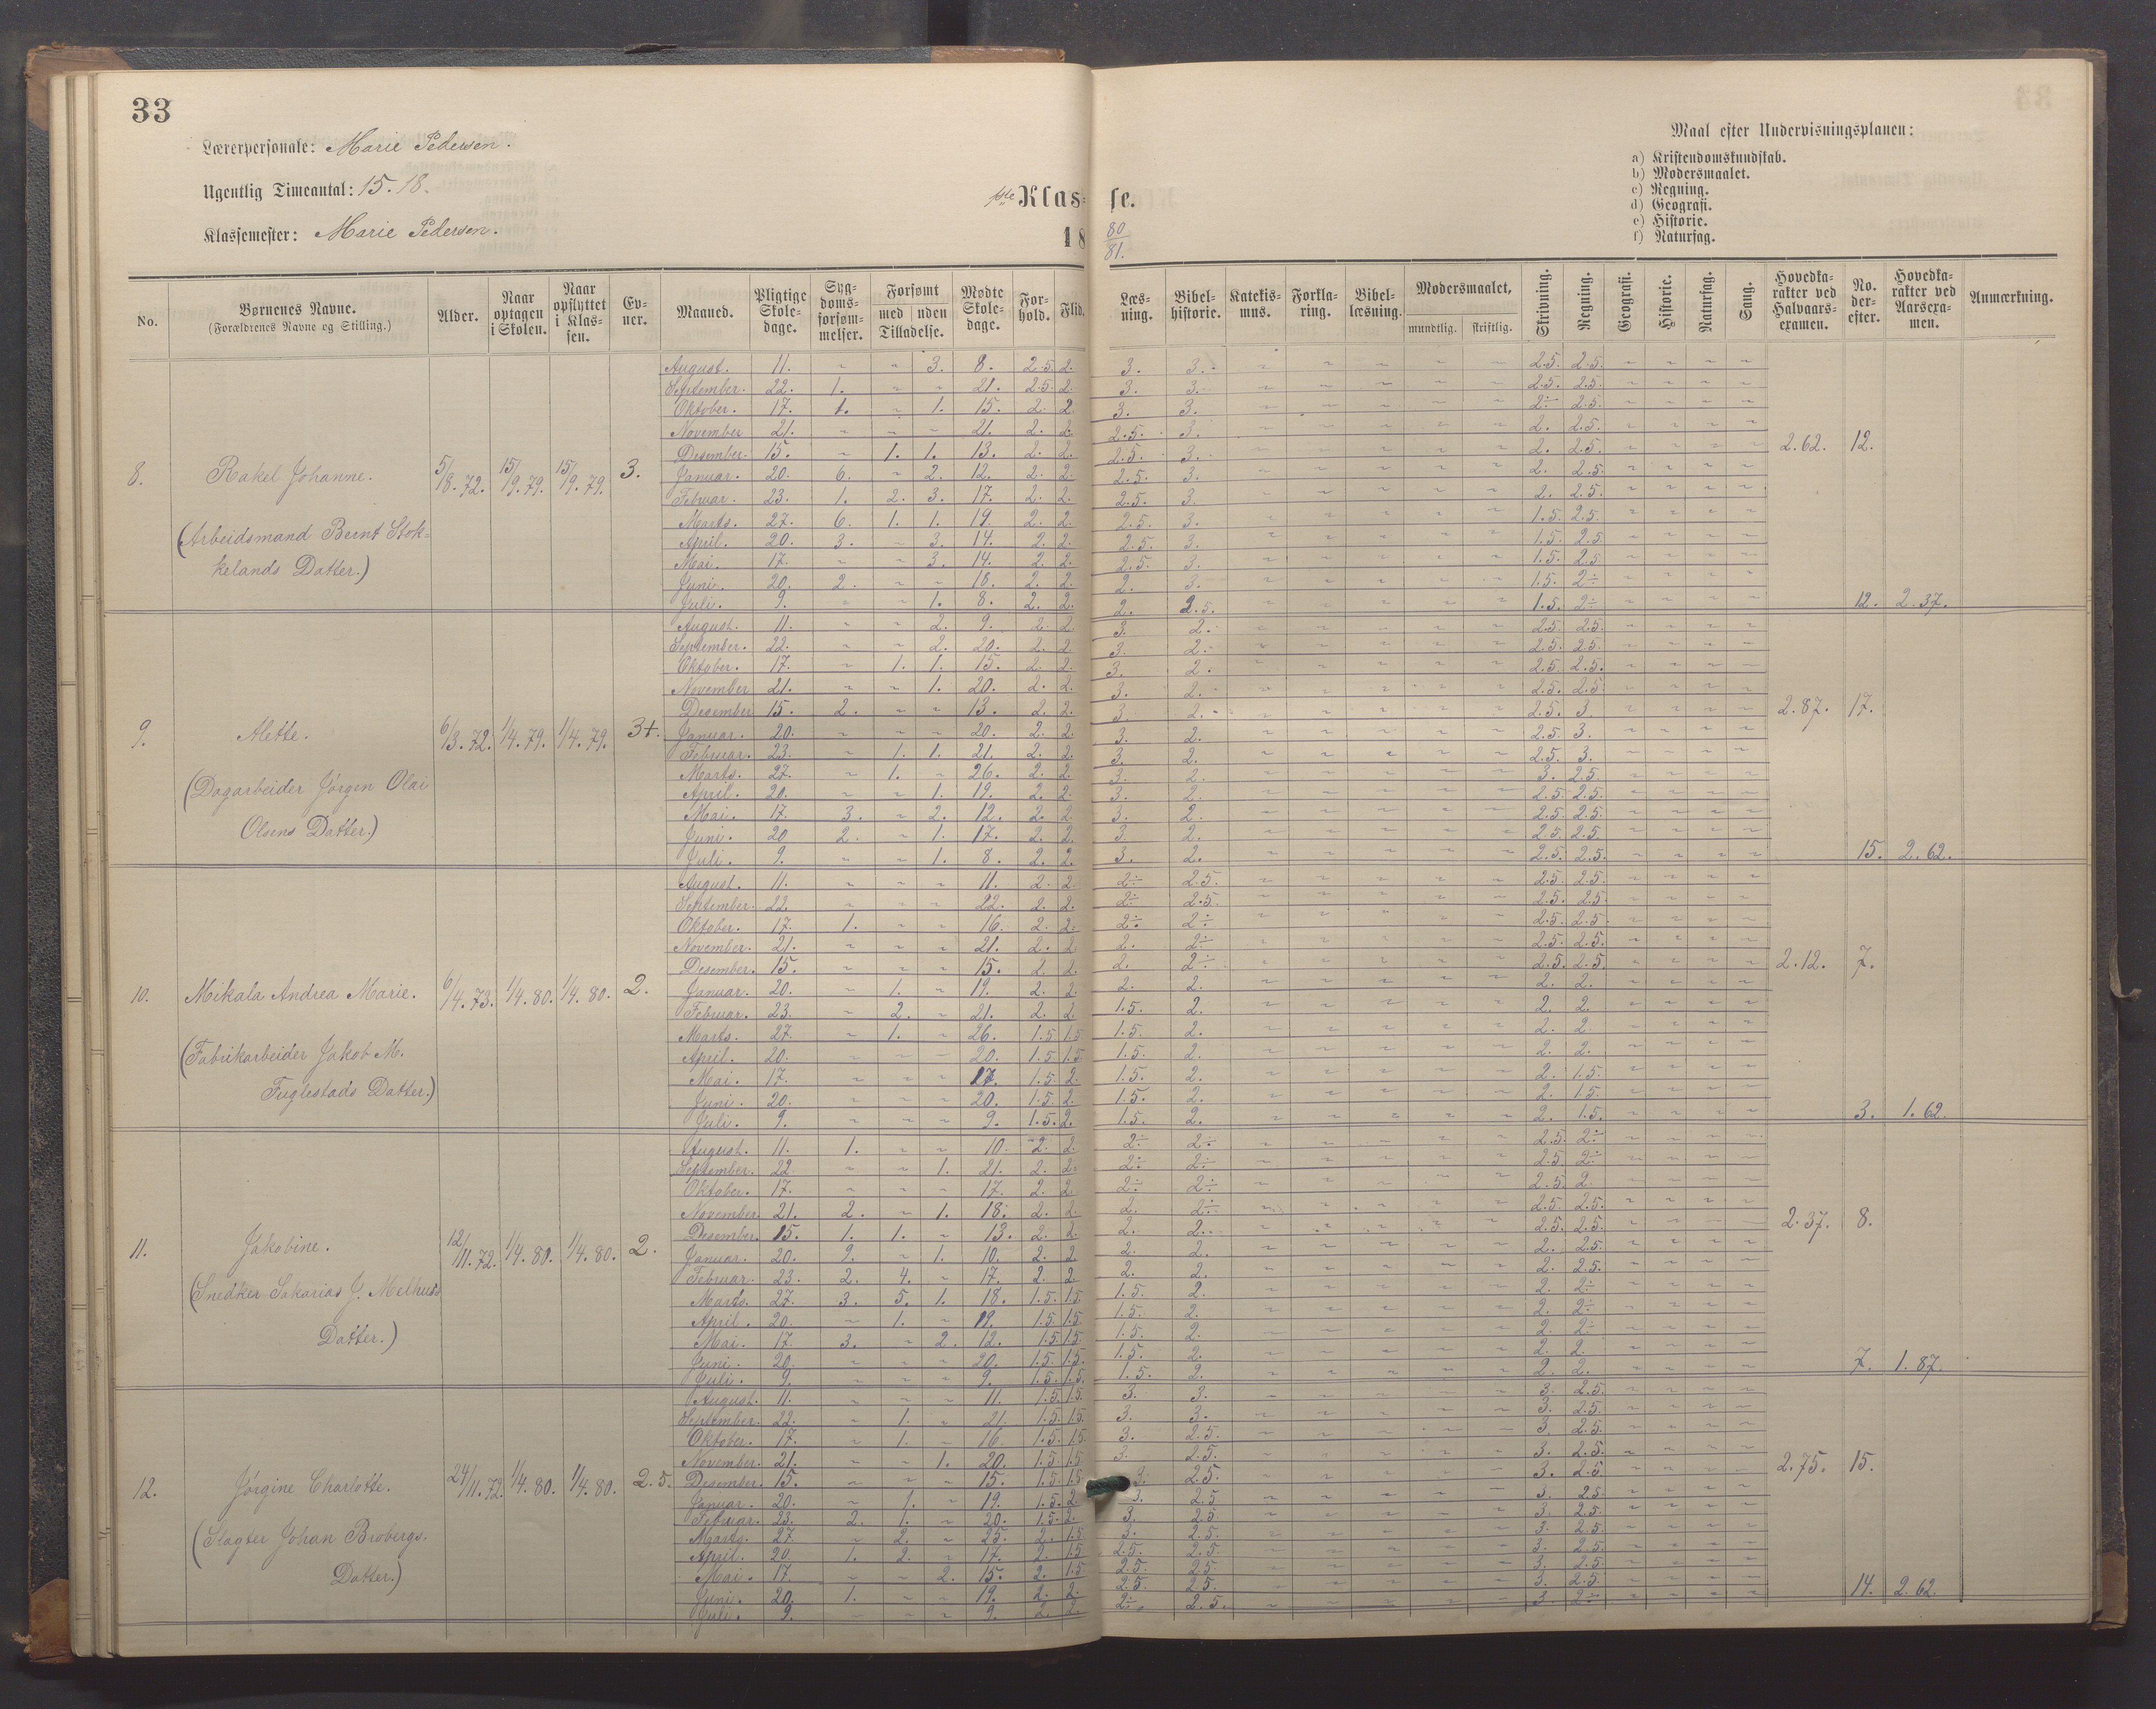 33
Lærerpersonale: Marie Pedersen.
Ugentlig Timeantal: 15.18.
Klassemester: Marie Pedersen.
1ste Klasse.
18 80/81.
Maal efter Undervisningsplanen:
a) Kristendomskundskab.
b) Modersmaalet.
c) Regning.
d) Geografi.
e) Historie.
f) Naturfag.
No. Børnenes Navne. (Forældrenes Navne og Stilling.) Alder. Naar optagen i Skolen. Naar opflyttet i Klassen. Evner. Maaned. Pligtige Skoledage. Sygdomsforsømmelser. Forsømt med uden Tilladelse. Mødte Skoledage. Forhold. Flid. Læsning. Bibelhistorie. Katekismus. Forklaring. Bibellæsning. Modersmaalet, mundtlig. skriftlig. Skrivning. Regning. Geografi. Historie. Naturfag. Sang. Hovedkarakter ved Halvaarsexamen. No. derefter. Hovedkarakter ved Aarsexamen. Anmærkning.
8. Rakel Johanne. 5/8.72. 15/9.79. 15/9.79. 3.
(Arbeidsmand Bernt Stokkelands Datter.)
August. 11. ~ ~ 3. 8. 2.5. 2. 3. 3. 2.5. 2.5.
September. 22. 1. ~ ~ 21. 2.5. 2. 3. 3. 2.5. 2.5.
Oktober. 17. 1. ~ 1. 15. 2. 2. 3. 3. 2÷ 2.5.
November 21. ~ ~ ~ 21. 2. 2. 2.5. 3. 2. 2.5.
Desember. 15. ~ 1. 1. 13. 2. 2. 2.5. 3. 2. 2.5. 2.62. 12.
Januar. 20. 6. ~ 2. 12. 2. 2. 2.5. 3. 2. 2.5.
Februar. 23. 1. 2. 3. 17. 2. 2. 2.5. 3. 2. 2.5.
Marts. 27. 6. 1. 1. 19. 2. 2. 2.5. 3. 1.5. 2.5.
April. 20. 3. ~ 3. 14. 2. 2. 2.5. 3. 1.5. 2.5
Mai. 17. ~ ~ 3. 14. 2. 2. 2.5. 3. 1.5. 2.5
Juni. 20. 2. ~ ~ 18. 2. 2. 2. 3. 1.5. 2÷
Juli. 9. ~ ~ 1. 8. 2. 2. 2. 2.5. 1.5. 2÷ 12. 2.37.
9. Alette. 6/3.72. 1/4.79. 1/4.79. 3+.
(Dagarbeider Jørgen Olai Olsens Datter.)
August. 11. ~ ~ 2. 9. 2. 2. 3. 2. 2.5. 2.5.
September. 22. ~ ~ 2. 20. 2. 2. 3. 2. 2.5. 2.5.
Oktober. 17. ~ 1. 1. 15. 2. 2. 3. 2. 2.5. 2.5.
November 21. ~ ~ 1. 20. 2. 2. 3. 2. 2.5. 2.5
Desember 15. 2. ~ ~ 13. 2. 2. 3. 2. 2.5. 3. 2.87. 17.
Januar. 20. ~ ~ ~ 20. 2. 2. 3. 2. 2.5. 3.
Februar. 23. ~ 1. 1. 21. 2. 2. 3. 2. 2.5. 3.
Marts. 27. ~ 1. ~ 26. 2. 2. 3. 2. 3. 2.5.
April. 20. ~ ~ 1. 19. 2. 2. 3. 2. 2.5. 2.5.
Mai. 17. 3. ~ 2. 12. 2. 2. 3. 2. 2.5. 2.5.
Juni. 20 2. ~ 1. 17. 2. 2. 3. 2. 2.5. 2.5.
Juli. 9. ~ ~ 1. 8. 2. 2. 3. 2. 2.5. 2.5. 15. 2.62.
10. Mikala Andrea Marie. 6/4.73. 1/4.80. 1/4.80. 2.
(Fabrikarbeider Jakob M. Fuglestads Datter.)
August. 11. ~ ~ ~ 11. 2. 2. 2÷ 2.5. 2.5. 2.5.
September. 22. ~ ~ ~ 22. 2. 2. 2÷ 2.5 2.5. 2.5
Oktober. 17. 1. ~ ~ 16. 2. 2. 2÷ 2÷ 2.5. 2.5
November. 21. ~ ~ ~ 21. 2. 2 2. 2÷ 2.5. 2.5.
Desember. 15. ~ ~ ~ 15. 2. 2. 2. 2÷ 2.5. 2.5. 2.12. 7.
Januar. 20. ~ 1. ~ 19. 2. 2. 2. 2. 2. 2.
Februar. 23. ~ 2. ~ 21. 2. 2. 1.5. 2. 2. 2.
Marts. 27. ~ 1. ~ 26. 1.5 1.5 1.5. 2. 2. 2
April. 20. ~ ~ ~ 20. 1.5. 1.5 1.5. 2. 2. 2.
Mai. 17. ~ ~ ~ 17. 1.5. 2. 1.5. 2. 2. 1.5.
Juni. 20. ~ ~ ~ 20. 1.5. 2. 1.5. 2. 2. 1.5.
Juli. 9. ~ ~ ~ 9. 1.5. 2. 1.5. 2. 2. 1.5. 3. 1.62.
11. Jakobine. 12/11.72. 1/4.80. 1/4.80. 2.
(Snedker Sakarias J. Melhuus Datter.)
August. 11. 1. ~ ~ 10. 2. 2. 2÷ 2÷ 2.5 2÷
September. 22. ~ ~ 1. 21. 2. 2. 2÷ 2÷ 2.5 2÷
Oktober. 17. ~ ~ ~ 17. 2. 2. 2÷ 2÷ 2.5. 2.
November. 21. 2. ~ 1. 18. 2. 2. 2. 2÷ 2.5. 2.5.
Desember. 15. 1. 1. ~ 13. 2. 2. 2. 2. 2.5. 2.5. 2.37. 8.
Januar. 20. 9. ~ 1. 10. 2. 2. 2. 2. 2. 2.5.
Februar. 23. 2. 4. ~ 17. 2. 2. 2. 2. 2. 2.5.
Marts. 27. 3. 5. 1. 18. 1.5. 1.5. 1.5. 2. 2. 2÷
April. 20. ~ 1. ~ 19. 1.5. 1.5 1.5. 2. 2. 2÷
Mai. 17. 3. ~ 2. 12. 1.5. 1.5. 1.5. 2. 2. 2÷
Juni. 20. ~ ~ ~ 20. 1.5. 1.5. 1.5. 2. 2. 2.
Juli. 9. ~ ~ ~ 9. 1.5. 1.5. 1.5. 2. 2. 2. 7. 1.87.
12. Jørgine Charlotte. 24/11.72. 1/4.80. 1/4.80. 2.5.
(Slagter Johan Brobergs. Datter.)
August. 11. ~ ~ ~ 11. 1.5. 1.5. 3. 3. 3. 2.5.
September. 22. ~ 1. ~ 21. 1.5. 1.5. 3. 3. 3. 2.5.
Oktober. 17. ~ 1. ~ 16. 1.5. 1.5. 3. 2.5. 3. 2.5.
November. 21. ~ ~ 1. 20. 1.5. 1.5 3. 2.5. 3. 2.5.
Desember. 15. ~ ~ ~ 15. 1.5. 1.5 3. 2.5. 3. 2.5. 2.75. 15.
Januar. 20. ~ 1. ~ 19. 1.5. 2. 3. 2.5 3. 2.5
Februar. 23. 2. 1. ~ 20. 1.5. 2. 3. 2.5. 3. 2.5.
Marts. 27. ~ 2. ~ 25. 2. 1.5 3. 2.5. 3. 2.5.
April. 20. 1. 2. ~ 17. 2. 1.5 2.5. 2.5 3. 2.5.
Mai. 17. ~ ~ 2. 15. 2. 1.5 2.5. 2.5 3. 2.5.
Juni. 20. 1. ~ ~ 19. 2. 2. 2.5 2.5. 3. 2.5.
Juli. 9. ~ ~ ~ 9. 2. 2. 2÷. 2.5. 3. 2÷ 14. 2.62.